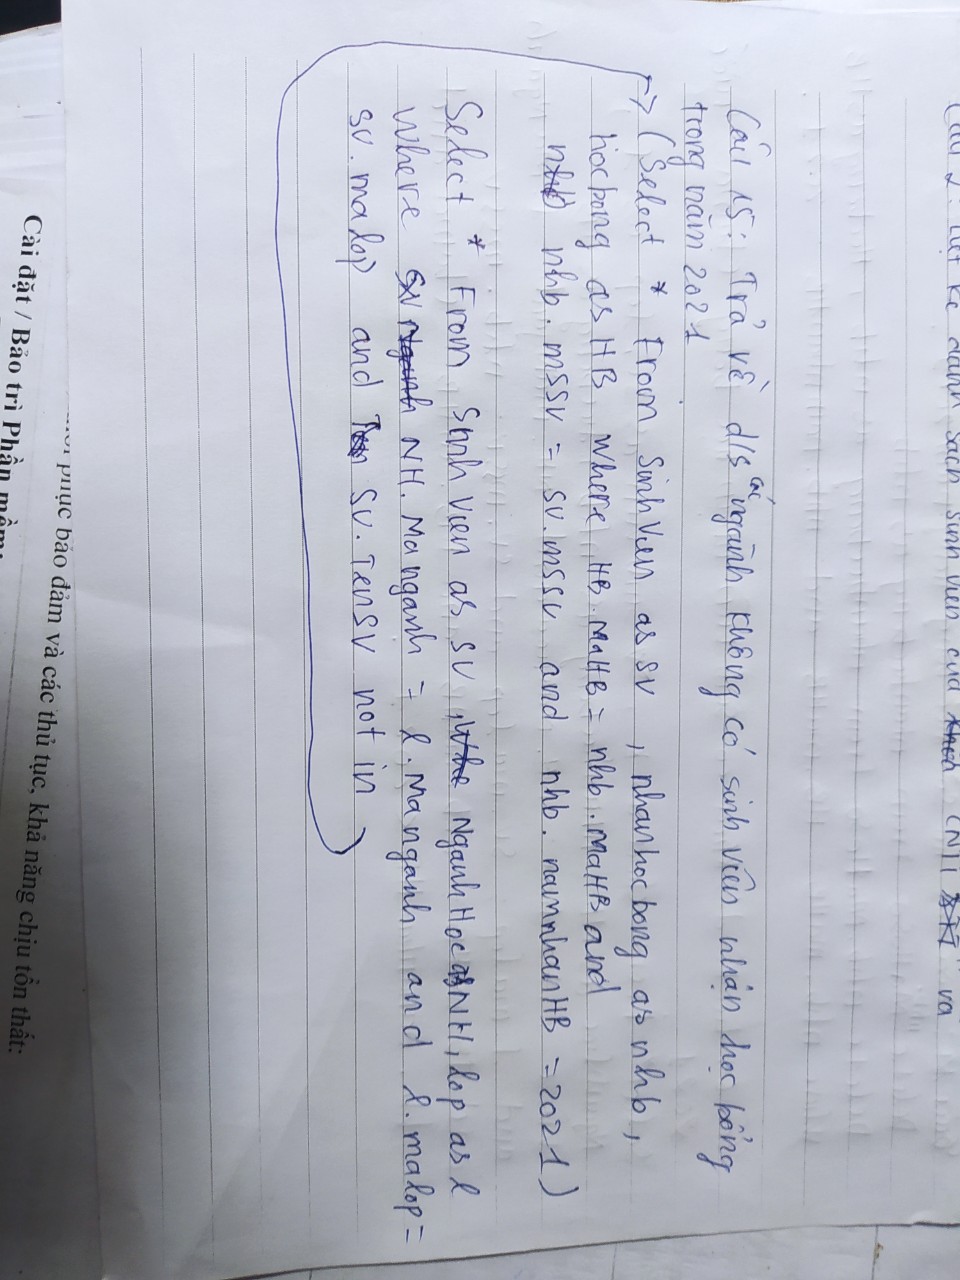 Câu 2: Liệt kê danh sách sinh viên của CNTT và
Câu 15: Trả về d/s các ngành không có sinh viên nhận học bổng
trong năm 2021
→ (Select * From SinhVien as SV, nhanhocbong as nhb,
hocbong as HB where HB.MaHB = nhb.MaHB and
nhb.mssv = sv.mssv and nhb.namnhanHB = 2021)
Select * From SinhVien as SV, NganhHoc as NH, lop as l
Where NH.Manganh = l.Manganh and l.malop =
sv.malop and SV.TenSV not in
phục bảo đảm và các thủ tục, khả năng chịu tổn thất:
Cài đặt / Bảo trì Phần mềm: